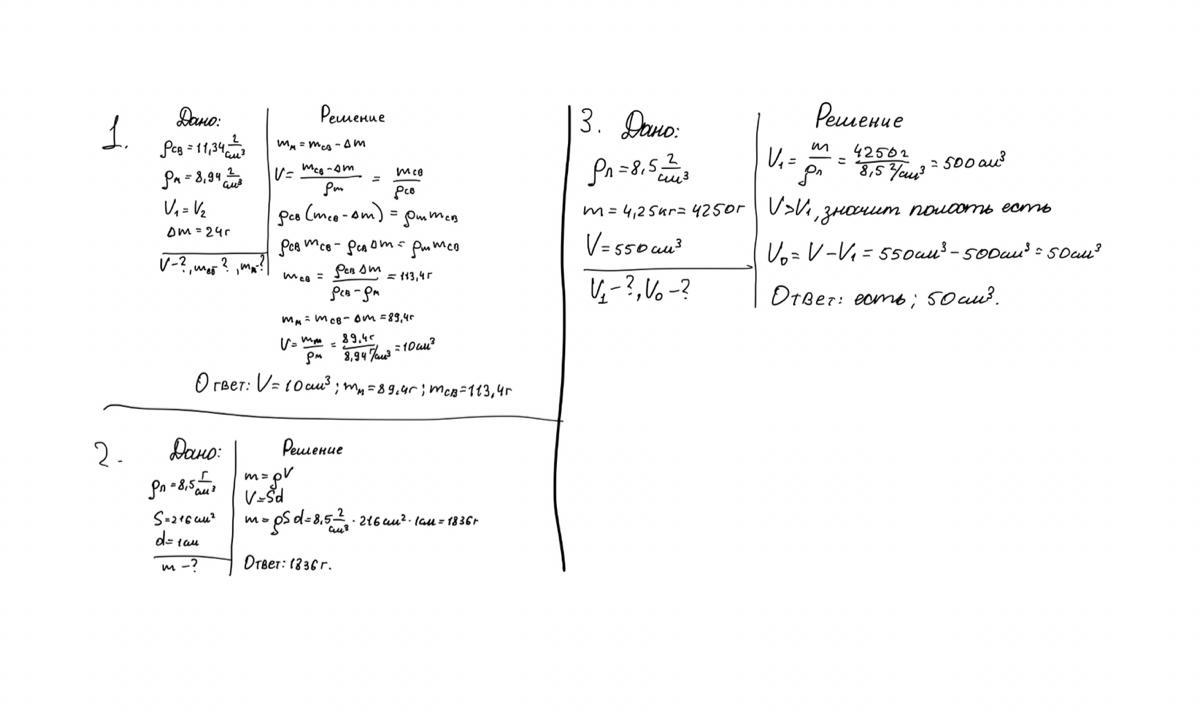 1. Дано: Решение
ρсв = 11,34 г/см³
ρм = 8,94 г/см³
V₁ = V₂
Δm = 24г
V-?, mсв?, mм?
mм = mсв - Δm
V = (mсв - Δm)/ρм = mсв/ρсв
ρсв(mсв - Δm) = ρм mсв
ρсв mсв - ρсв Δm = ρм mсв
mсв = ρсв Δm/(ρсв - ρм) = 113,4г
mм = mсв - Δm = 89,4г
V = mм/ρм = 89,4г/8,94 г/см³ = 10см³
Ответ: V = 10см³; mм = 89,4г; mсв = 113,4г
2. Дано: Решение
ρл = 8,5 г/см³
S = 216 см²
d = 1см
m - ?
m = ρV
V = Sd
m = ρSd = 8,5 г/см³ · 216см² · 1см = 1836г
Ответ: 1836г.
3. Дано: Решение
ρл = 8,5 г/см³
m = 4,25кг = 4250г
V = 550см³
V₁ - ?, V₀ - ?
V₁ = m/ρл = 4250г/8,5 г/см³ = 500см³
V>V₁, значит полость есть
V₀ = V - V₁ = 550см³ - 500см³ = 50см³
Ответ: есть; 50см³.